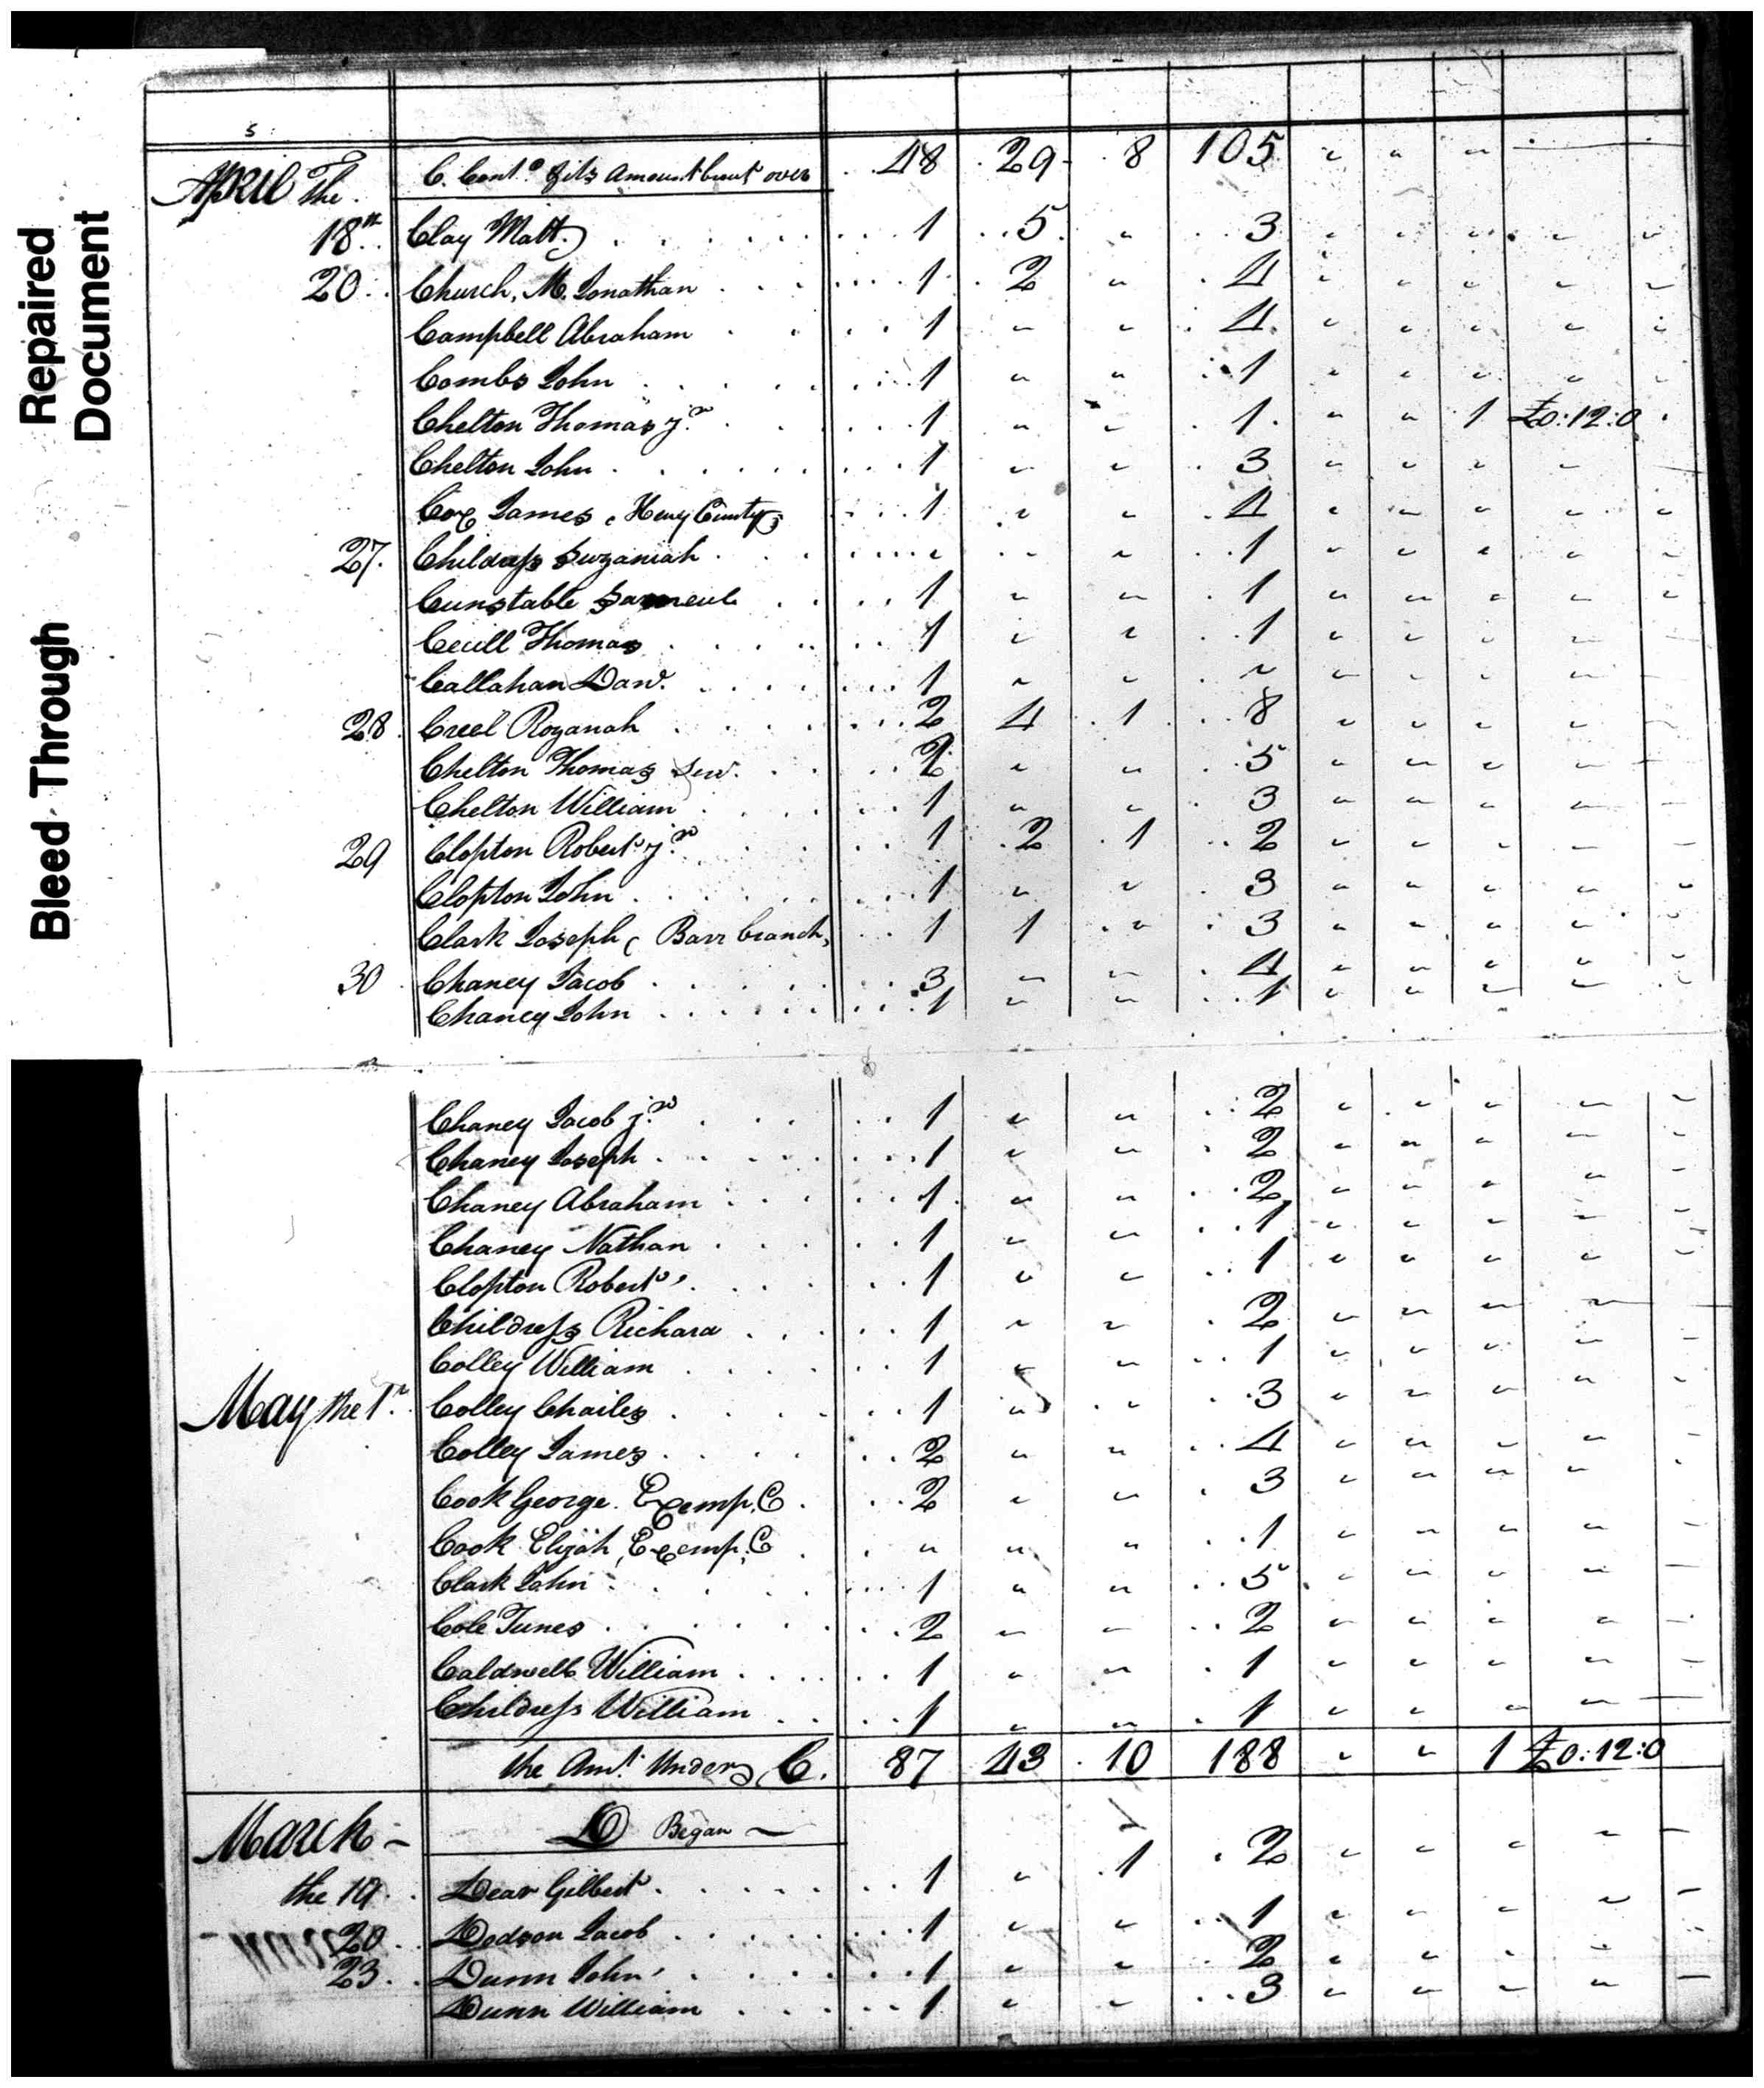 Repaired
Document
Bleed Through
5
April The. C. Cont.d & its Amount brout over 48 29 8 105 " " "
18th Clay Matt. 1 5 " 3 " " " " "
20 Church, M. Jonathan 1 2 " 4 " " " " "
Campbell Abraham 1 " " 4 " " " " "
Combs John 1 " " 1 " " " " "
Chelton Thomas jr. 1 " " 1 " " 1 £0:12:0
Chelton John 1 " " 3 " " " "
Cox James, Henry County 1 " " 4 " " " " "
27. Childress Suzaniah " " " 1 " " " " "
Cunstable Sameul 1 " " 1 " " " " "
Cecill Thomas 1 " " 1 " " " "
Callahan Dav. 1 " " " " " " "
28 Creel Rozanah 2 4 1 8 " " " "
Chelton Thomas Senr. 2 " " 5 " " " "
Chelton William 1 " " 3 " " " "
29 Clopton Robert jr. 1 2 1 2 " " " "
Clopton John 1 " " 3 " " " " "
Clark Joseph ( Barr branch, 1 1 " 3 " " " " "
30 Chaney Jacob 3 " " 4 " " " " "
Chaney John 1 " " 1 " " " "
Chaney Jacob jr. 1 " " 2 " " " " "
Chaney Joseph 1 " " 2 " " " " "
Chaney Abraham 1 " " 2 " " " " "
Chaney Nathan 1 " " 1 " " " " "
Clopton Robert 1 " " 1 " " " " "
Childress Richard 1 " " 2 " " " "
Colley William 1 " " 1 " " " " "
May the 1st. Colley Charles 1 " " 3 " " " " "
Colley James 2 " " 4 " " " " "
Cook George. Exemp. C 2 " " 3 " " " "
Cook Elijah, Exemp. C " " " 1 " " " " "
Clark John 1 " " 5 " " " " "
Cole Tunes 2 " " 2 " " " " "
Caldwell William 1 " " 1 " " " " "
Childress William 1 " " 1 " " " "
the Amt. Under C. 87 43 10 188 " " 1 £0:12:0
March D Began
the 19 Dear Gilbert 1 " 1 2 " " " " "
20 Dodson Jacob 1 " " 1 " " " " "
23 Dunn John 1 " " 2 " " " "
Dunn William 1 " " 3 " " " " "